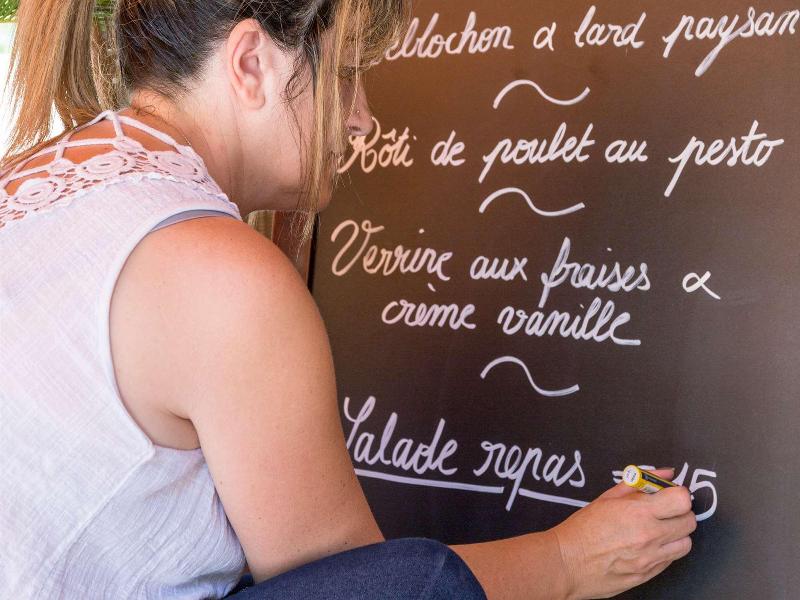 eblochon & lard paysan
~
Rôti de poulet au pesto
~
Verrine aux fraises &
crème vanille
~
Salade repas = 15